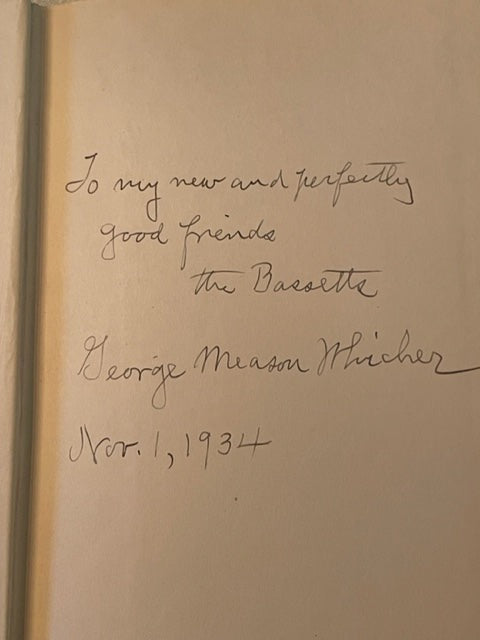 To my new and perfectly
good friends
the Bassetts
George Meason Whicher
Nov. 1, 1934